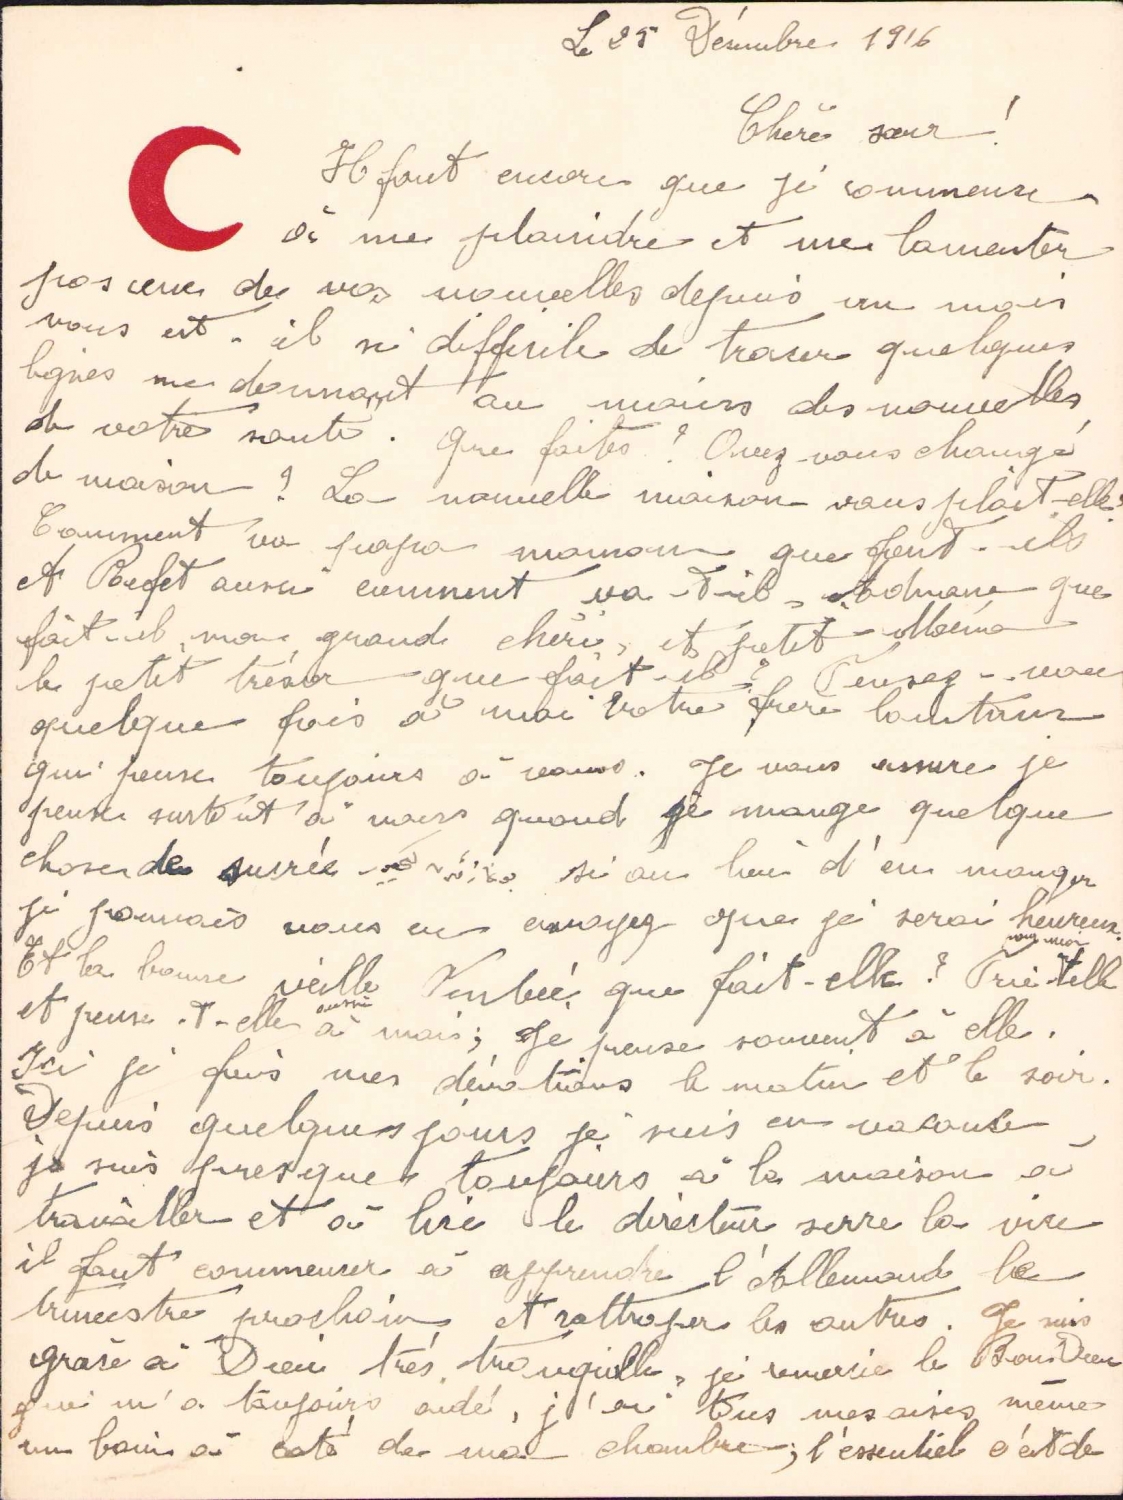 Le 25 Décembre 1916
Chère sœur !
Il faut encore que je commence
à me plaindre et me lamenter
pas une de vos nouvelles depuis un mois
vous est-il si difficile de tracer quelques
lignes me donnant au moins des nouvelles
de votre santé. Que faites ? Avez vous changé
de maison ? La nouvelle maison vous plaît-elle ?
Comment va papa maman que font-ils
et Refet aussi comment va-t-il, Adnane que
fait-il, mon grand chéri, et petit
le petit trésor que fait-il ? Pensez-vous
quelque fois à moi votre frère lointain
qui pense toujours à vous. Je vous assure je
pense surtout à vous quand je mange quelque
chose de sucrée si au lieu d'en manger
je pouvais vous en envoyez que je serai heureux.
Et la bonne vieille que fait-elle ? Prie-telle pour moi
et pense-t-elle aussi à moi ; Je pense souvent à elle.
Ici je fais mes dévotions le matin et le soir.
Depuis quelques jours je suis en vacance,
je suis presque toujours à la maison à
travailler et à lire le directeur serre la vice
il faut commencer à apprendre l'Allemand le
trimestre prochain et rattraper les autres. Je suis
grace à Dieu très tranquille, je remercie le Bon Dieu
qui m'a toujours aidé, j'ai tous mes aises même
un bain à coté de ma chambre ; l'essentiel c'est de